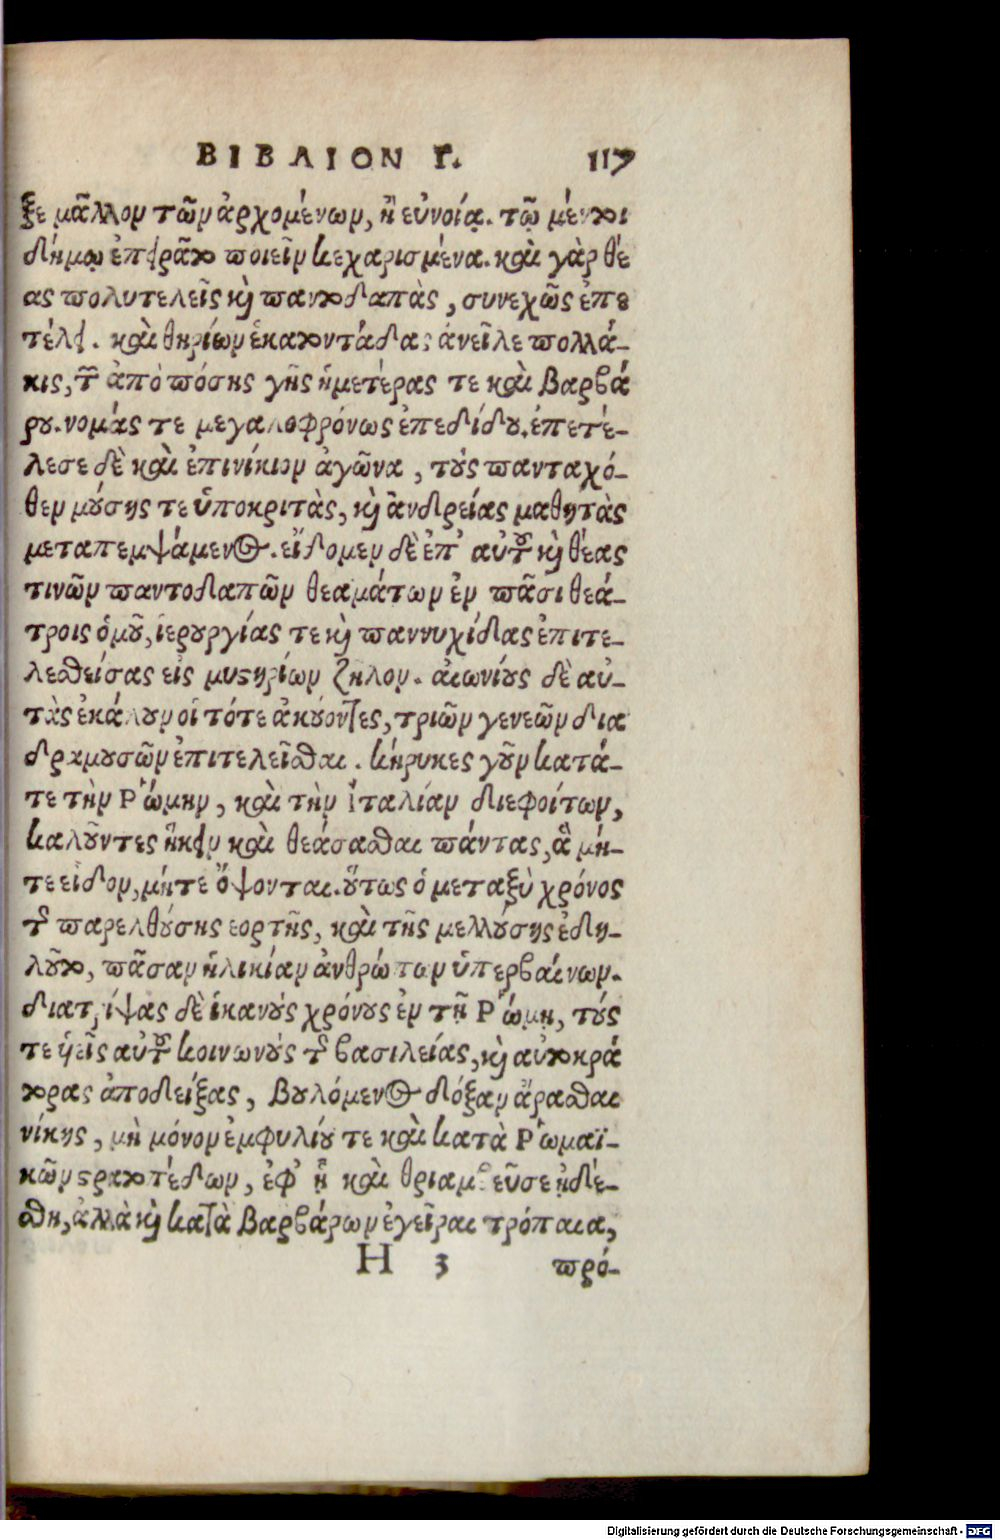 ΒΙΒΛΙΟΝ Γ. 117
ξε μᾶλλον τῶν ἀρχομένων, ἢ εὐνοίᾳ. τῷ μέντοι
δήμῳ ἐπειρᾶτο ποιεῖν κεχαρισμένα. καὶ γὰρ θέ
ας πολυτελεῖς κὶ παντοδαπὰς, συνεχῶς ἐπε
τέλει. καὶ θηρίων ἑκατοντάδας ἀνεῖλε πολλά-
κις, τῶν ἀπὸ πάσης γῆς ἡμετέρας τε καὶ βαρβά
ρου. νομάς τε μεγαλοφρόνως ἐπεδίδου. ἐπετέ-
λεσε δὲ καὶ ἐπινίκιον ἀγῶνα, τοὺς πανταχό-
θεν μούσης τε ὑποκριτὰς, κὶ ἀνδρείας μαθητὰς
μεταπεμψάμενος. εἴδομεν δὲ ἐπ' αὐτοῦ κὶ θέας
τινῶν παντοδαπῶν θεαμάτων ἐν πᾶσι θεά-
τροις ὁμοῦ, ἱερουργίας τε κὶ παννυχίδας ἐπιτε-
λεσθείσας εἰς μυστηρίων ζῆλον. αἰωνίους δὲ αὐ-
τὰς ἐκάλουν οἱ τότε ἀκούοντες, τριῶν γενεῶν δια
δραμουσῶν ἐπιτελεῖσθαι. κήρυκες γοῦν κατά-
τε τὴν Ῥώμην, καὶ τὴν Ἰταλίαν διεφοίτων,
καλοῦντες ἥκειν καὶ θεάσασθαι πάντας, ἃ μή-
τε εἶδον, μήτε ὄψονται. οὕτως ὁ μεταξὺ χρόνος
τῆς παρελθούσης ἑορτῆς, καὶ τῆς μελλούσης ἐδη-
λοῦτο, πᾶσαν ἡλικίαν ἀνθρώπων ὑπερβαίνων.
διατρίψας δὲ ἱκανοὺς χρόνους ἐν τῇ Ῥώμῃ, τούς
τε υἱεῖς αὐτοῦ κοινωνοὺς τῆς βασιλείας, κὶ αὐτοκρά
τορας ἀποδείξας, βουλόμενος δόξαν ἄρασθαι
νίκης, μὴ μόνον ἐμφυλίου τε καὶ κατὰ Ῥωμαϊ-
κῶν στρατοπέδων, ἐφ' ᾗ καὶ θριαμβεῦσαι ᾐδέ-
σθη, ἀλλὰ κὶ κατὰ βαρβάρων ἐγεῖραι τρόπαια,
H 3 πρό-
Digitalisierung gefördert durch die Deutsche Forschungsgemeinschaft - DFG